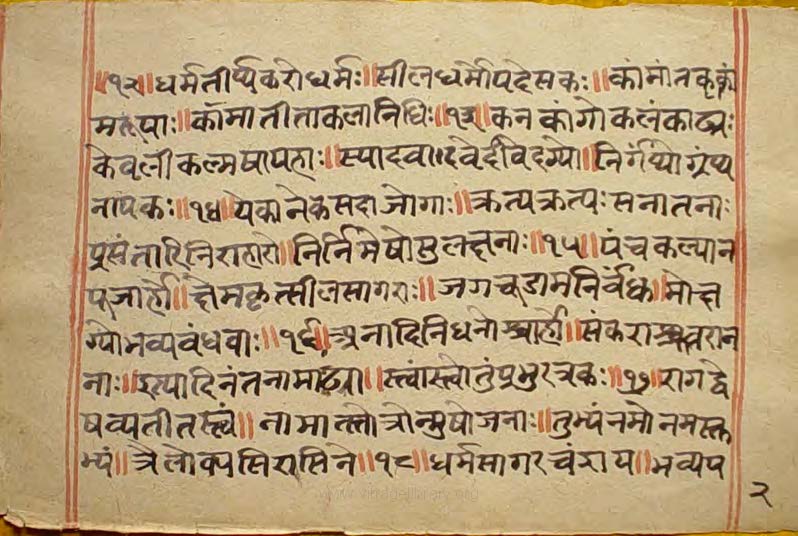 ॥१२॥धर्मतीर्थकरोधर्मः॥सीलधर्मोपदेसकः॥कांमांतकृकां
मरुपाः॥कांमातीताकलानिधिः॥१३॥कनकांगोकलंकाढ्यः
केवलीकल्मषापहाः॥स्यादवा॥दवेदीविदग्यो॥निर्गंथ्योग्रंथ्य
नायकः॥१४॥येकानेकेसदाजोगाः॥क्रत्यक्रत्यःसनातनाः
प्रसंतारिनिराहारो॥निर्निमेषोसुलक्षनाः॥१५॥पंचकल्यान
पुजार्हो॥क्षेमकृत्सीलसागरः॥जगचूडामनिर्वेधक॥मोक्ष
ग्योभव्यबंधवाः॥१६॥अनादिनिधनो
नाः॥इत्यादिनंतनामाढ्या॥स्त्वांस्तोतुंप्रभुरत्रकः॥१७॥रागद्वे
षव्यतीतस्त्वं॥नामास्तोत्रोन्मुषोजनाः॥तुभ्यंनमोनमस्तु
भ्यं॥त्रैलोक्यसिरासिने॥१८॥धर्मसागरचंराय॥भव्यप
२
www.vitragelibrary.org